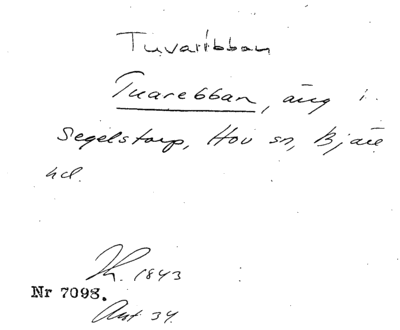 Tuvaribban
Tuarebban, äng i
Segelstorp, Hov sn, Bjäre
hd.
Th. 1843
Nr 7098.
Ant 34.